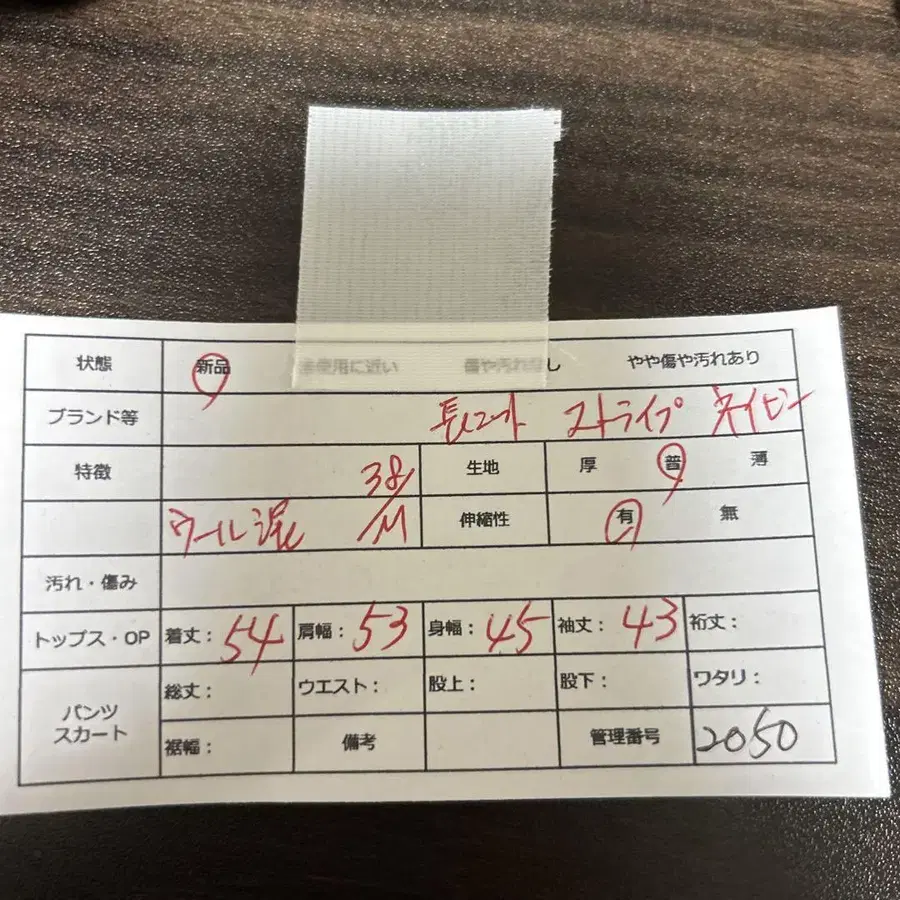 状態 新品 未使用に近い 傷や汚れなし やや傷や汚れあり
ブランド等 長Tニット ストライプ ネイビー
特徴 38 生地 厚 普 薄
ウール混 M 伸縮性 有 無
汚れ・傷み
トップス・OP 着丈: 54 肩幅: 53 身幅: 45 袖丈: 43 裄丈:
パンツ スカート 総丈: ウエスト: 股上: 股下: ワタリ:
裾幅: 備考 管理番号 2050